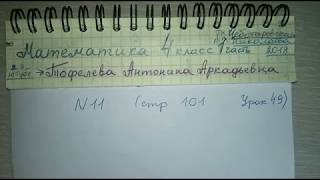 Математика 4 класс 1 часть 2018
→ Тофелева Антонина Аркадьевна
N 11 (стр 101 Урок 49)